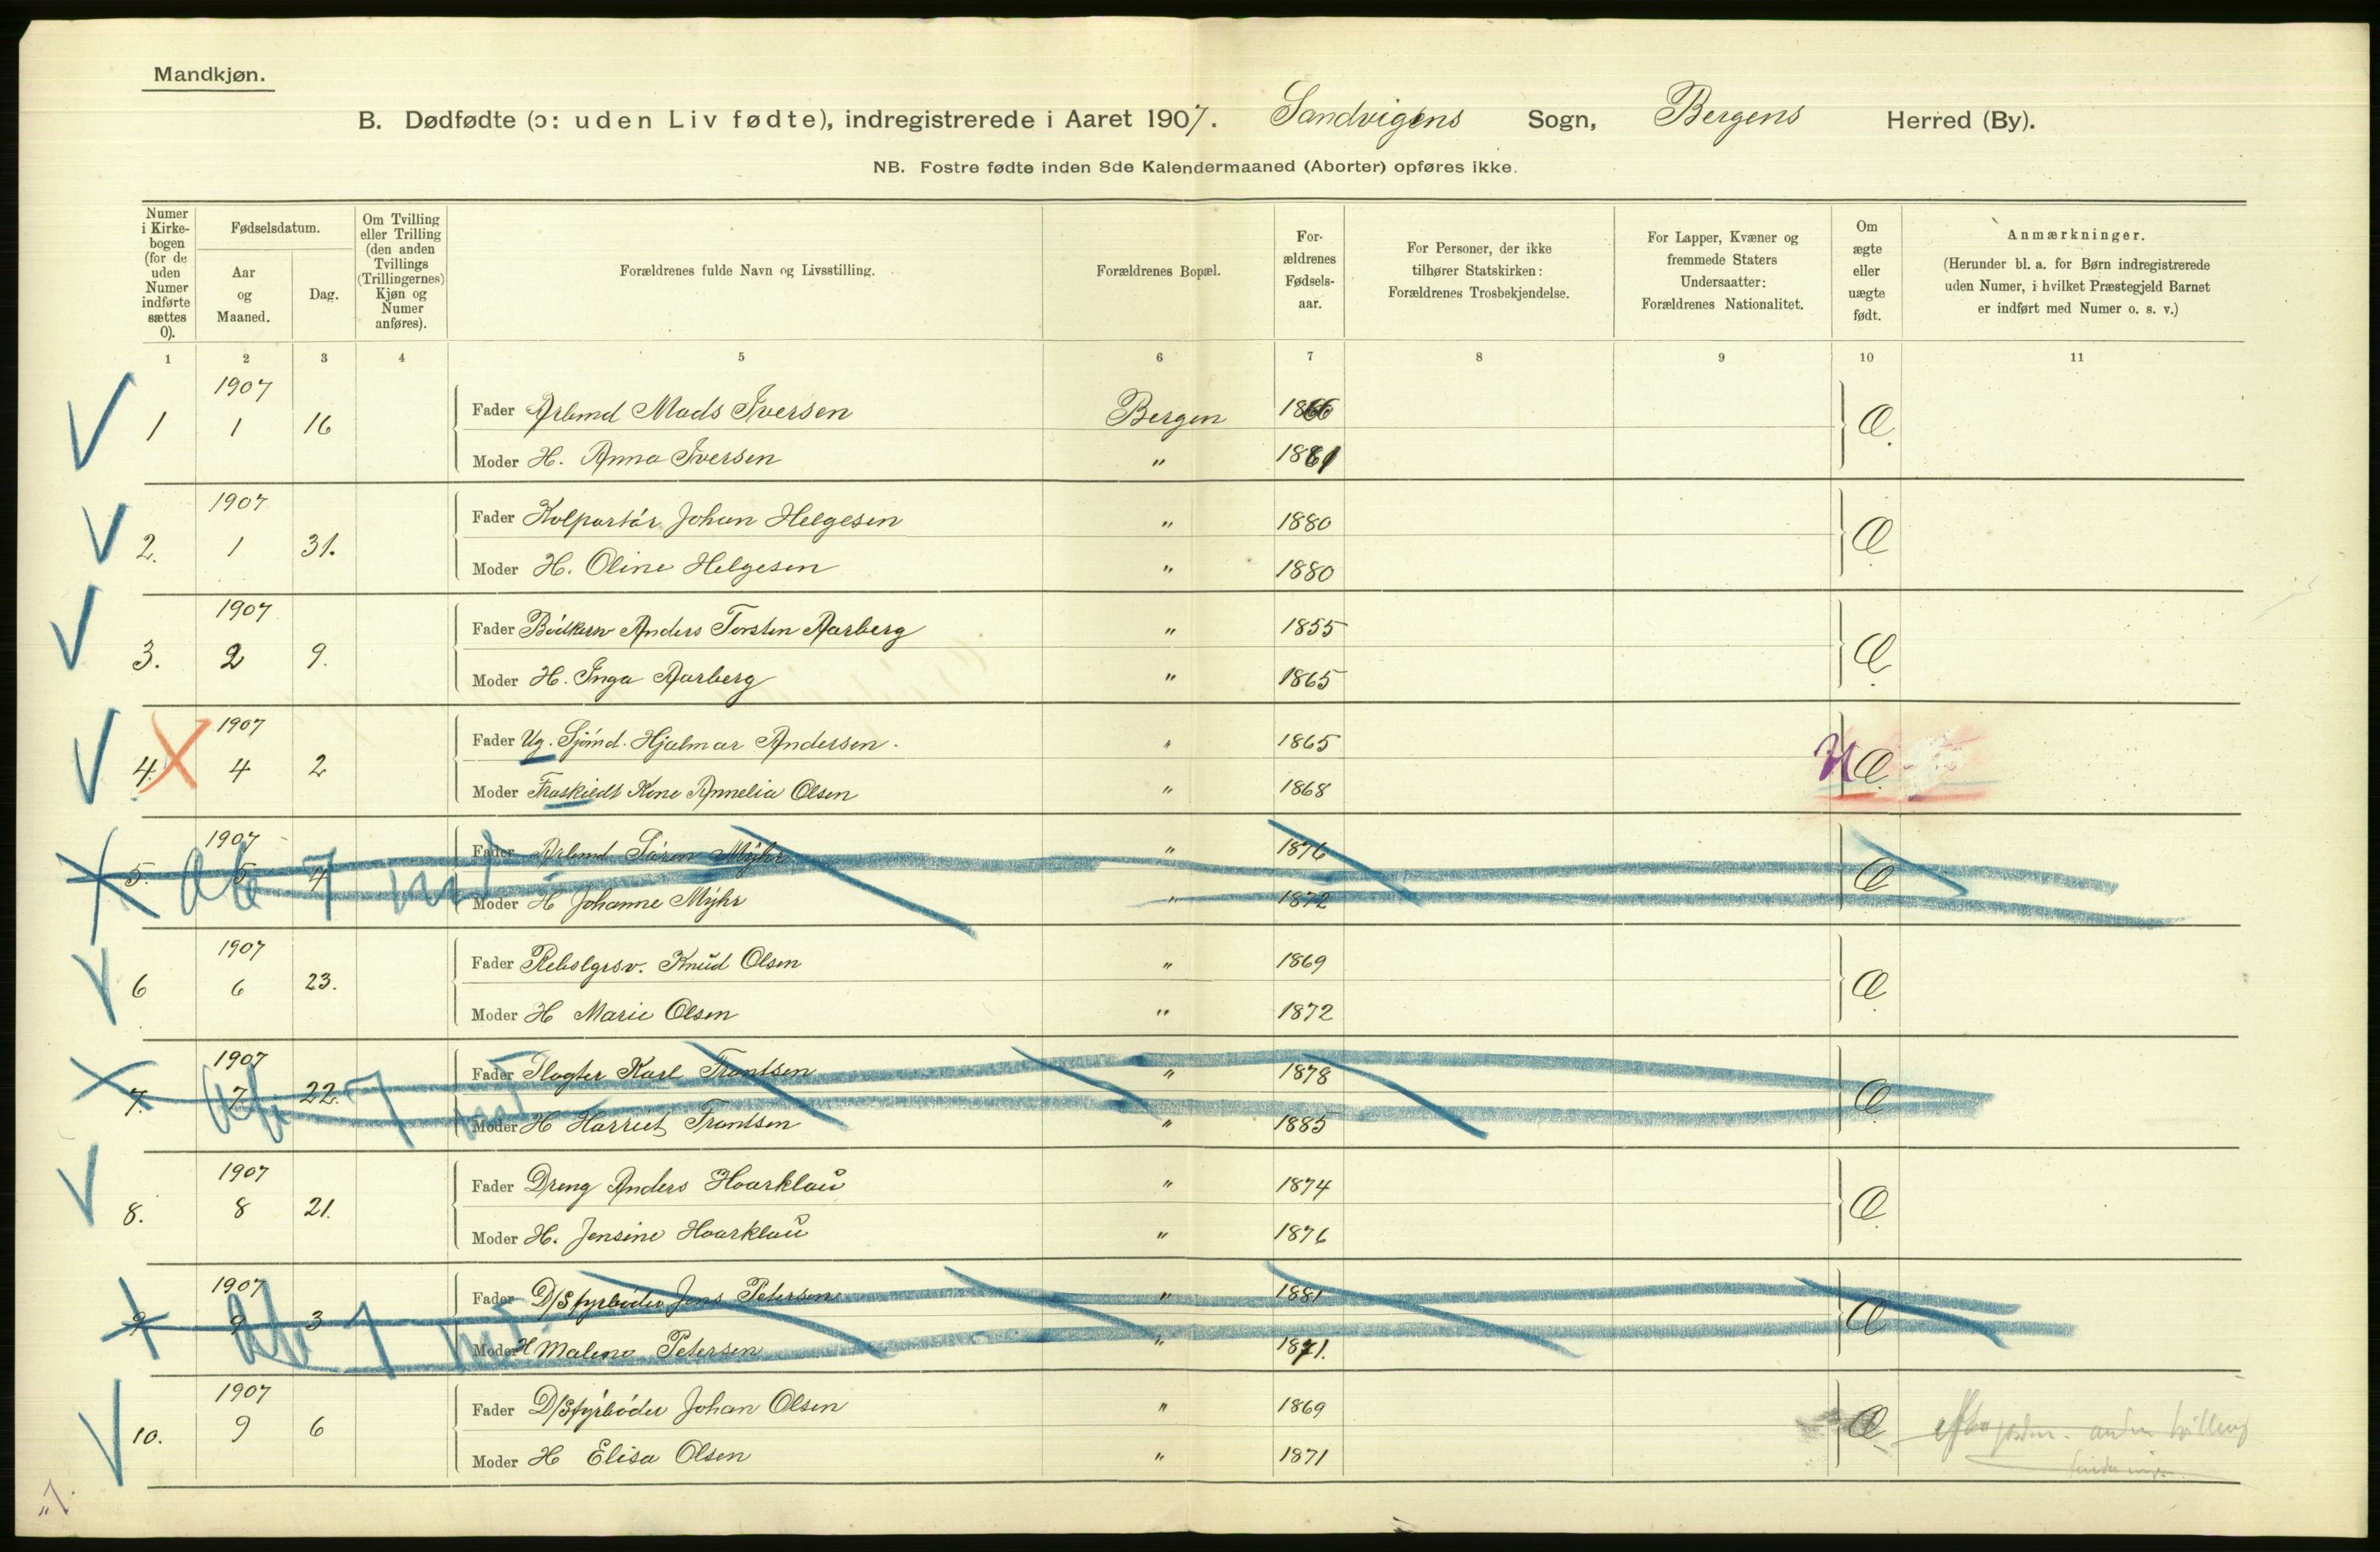 Mandkjøn.
B. Dødfødte (ɔ: uden Liv fødte), indregistrerede i Aaret 1907. Sandvigens Sogn, Bergens Herred (By).
NB. Fostre fødte inden 8de Kalendermaaned (Aborter) opføres ikke.
Numer i Kirke-bogen (for de uden Numer indførte sættes 0).
Fødselsdatum.
Aar og Maaned.
Dag.
Om Tvilling eller Trilling (den anden Tvillings (Trillingernes) Kjøn og Numer anføres).
Forældrenes fulde Navn og Livsstilling.
Forældrenes Bopæl.
For-ældrenes Fødsels-aar.
For Personer, der ikke tilhører Statskirken: Forældrenes Trosbekjendelse.
For Lapper, Kvæner og fremmede Staters Undersaatter: Forældrenes Nationalitet.
Om ægte eller uægte født.
Anmærkninger. (Herunder bl. a. for Børn indregistrerede uden Numer, i hvilket Præstegjeld Barnet er indført med Numer o. s. v.)
1 2 3 4 5 6 7 8 9 10 11
1907
Fader Arbmd Mads Iversen Bergen 1866
1 1 16 Æ.
Moder H. Anna Iversen " 1881
1907
Fader Kolportör Johan Helgesen " 1880
2. 1 31. Æ
Moder H. Oline Helgesen " 1880
1907
Fader Bödker Anders Torsten Aarberg " 1855
3. 2 9. Æ
Moder H. Inga Aarberg " 1865
1907
Fader Ug. Sjömd. Hjalmar Andersen. " 1865
4. 4 2 U Æ
Moder Fraskiedt Kone Annelia Olsen " 1868
1907
Fader Arbmd Sören Mÿhr " 1876
5. 5 4 Ab 7 md Æ
Moder H Johanne Mÿhr " 1872
1907
Fader Rebslgrsv. Knud Olsen " 1869
6 6 23. Æ
Moder H Marie Olsen " 1872
1907
Fader Slagter Karl Frantsen " 1878
7. 7 22. Ab. 7 md Æ
Moder H Harriet Frantsen " 1885
1907
Fader Dreng Anders Haarklau " 1874
8. 8 21. Æ
Moder H. Jensine Haarklau " 1876
1907
Fader D/S fyrböder Jens Petersen " 1881
9 9 3 Ab 7 md Æ
Moder H Malene Petersen " 1871.
1907
Fader D/S fyrböder Johan Olsen " 1869
10. 9 6 Æ
Moder H Elisa Olsen " 1871